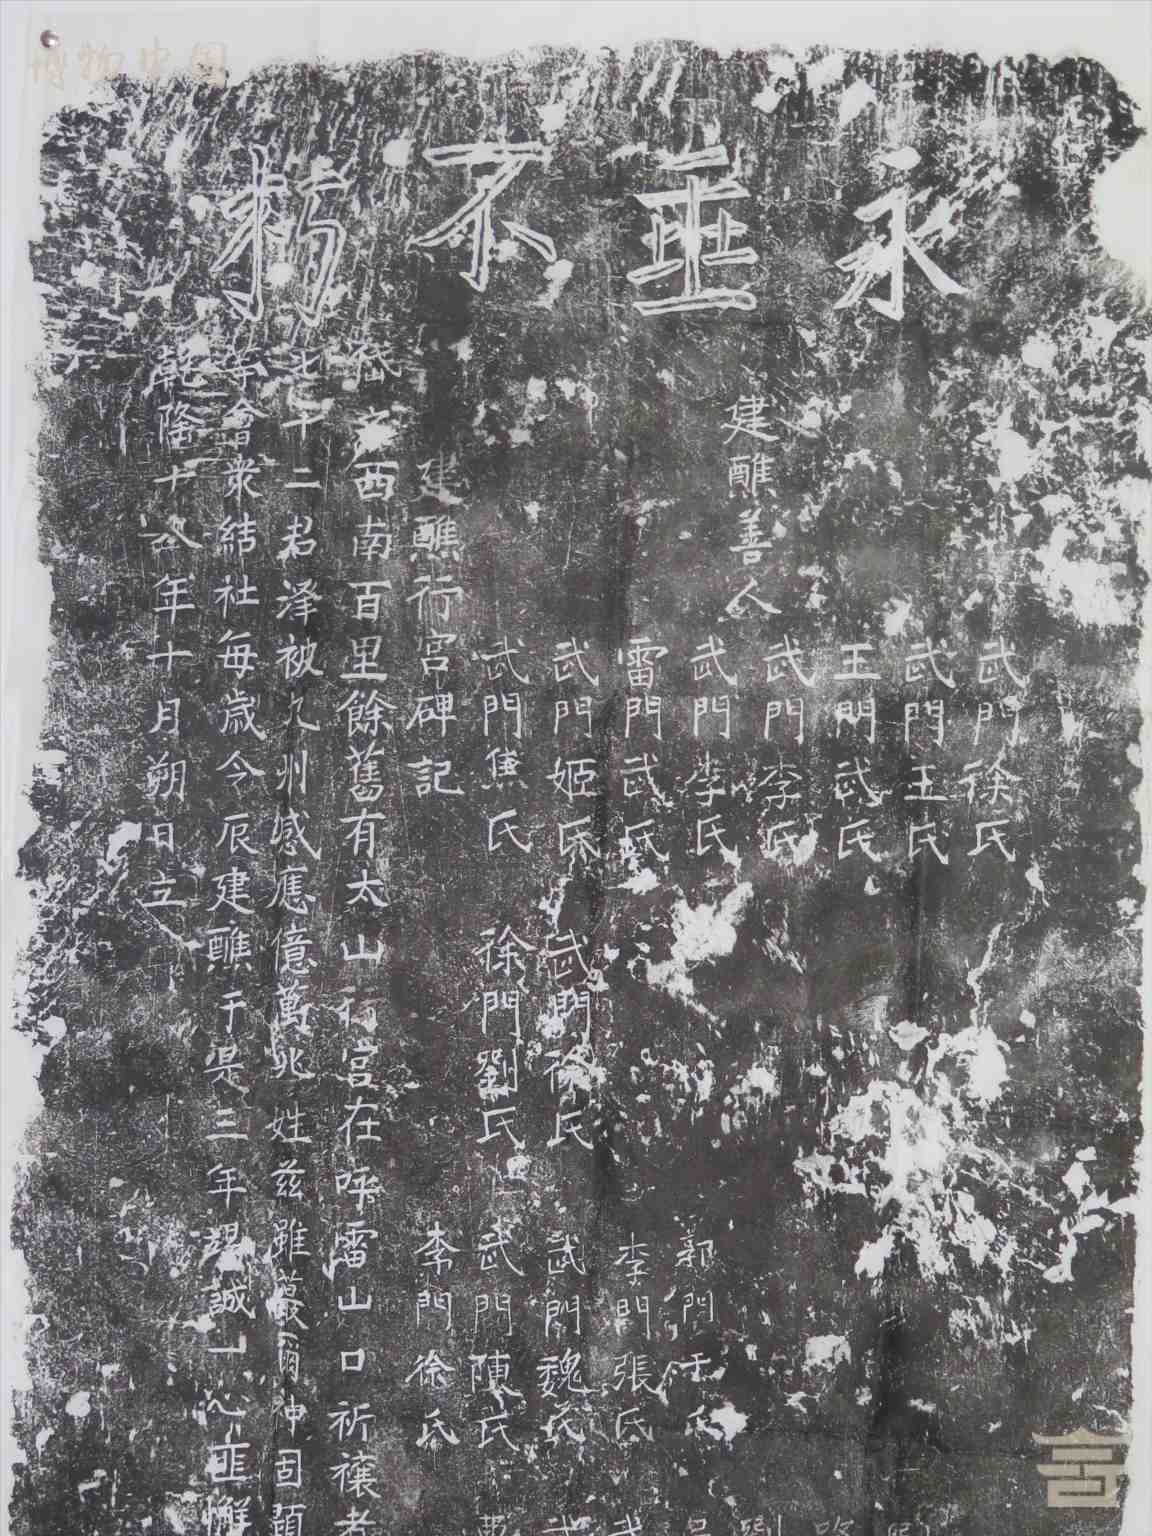 博物中国
永垂不朽
建醮善人
武門徐氏
武門王氏
王門武氏
武門李氏
武門李氏 郭門任氏
雷門武氏 李門張氏 武
武門姬氏 武門徐氏 武門魏氏 武
武門焦氏 徐門劉氏 武門陳氏
建醮行宮碑記 李門徐氏
岱之西南百里餘舊有太山行宮在呼雷山口祈禳者
七十二君澤被九州感應億萬兆姓茲雖蕞爾神固顯
等會衆結社每歲令辰建醮于是三年竭誠一心匪懈
乾隆十八年十月朔日立